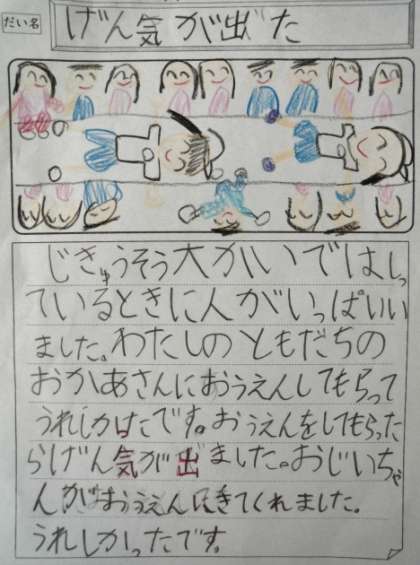 だい名
げん気が出た
じきゅうそう大かいではしっ
ているときに人がいっぱいい
ました。わたしのともだちの
おかあさんにおうえんしてもらって
うれしかたです。おうえんをしてもらった
らげん気が出ました。おじいちゃ
んがおうえんにきてくれました。
うれしかったです。